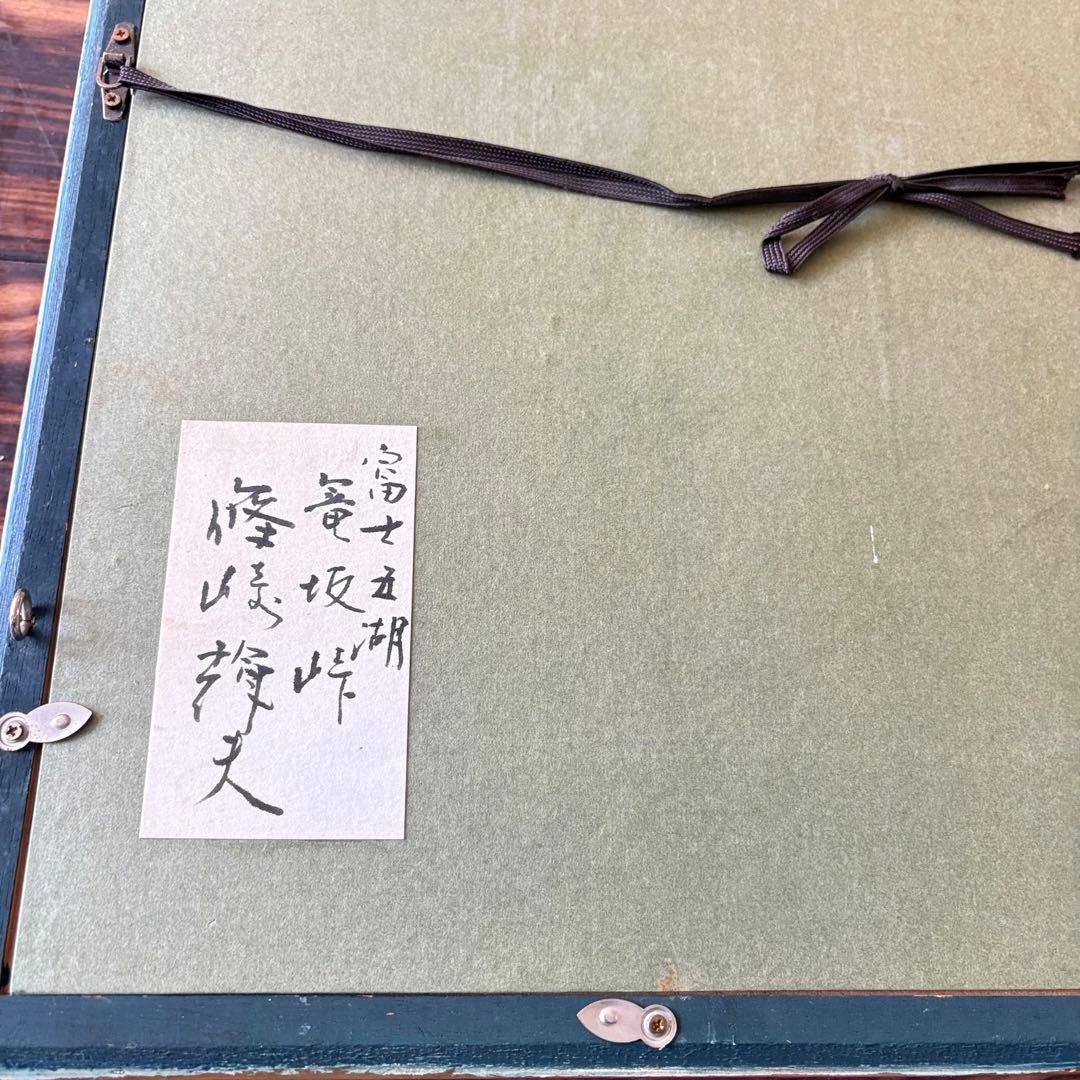 富士五湖
篭坂峠
篠崎輝夫